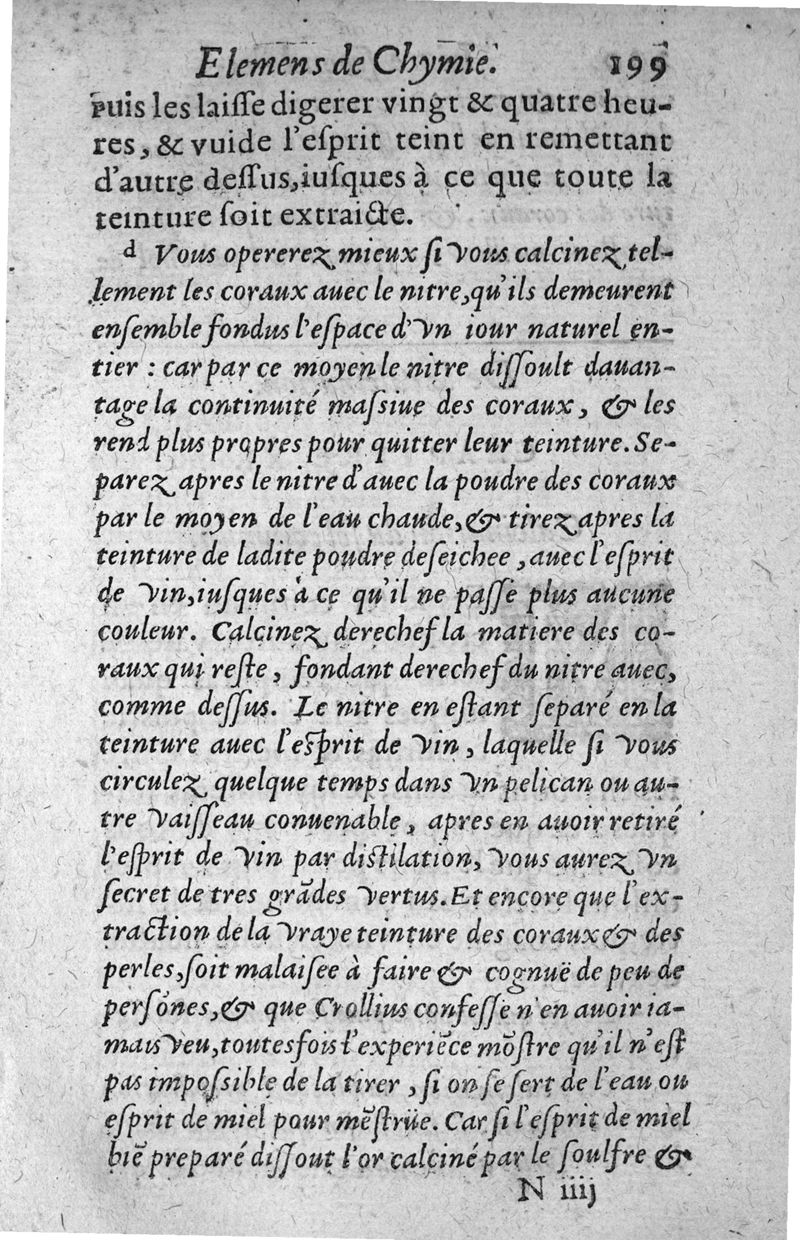 Elemens de Chymie. 199
puis les laiſſe digerer vingt & quatre heu-
res, & vuide l'eſprit teint en remettant
d'autre deſſus, iuſques à ce que toute la
teinture ſoit extraicte.
d Vous opererez mieux ſi vous calcinez tel-
lement les coraux auec le nitre, qu'ils demeurent
enſemble fondus l'eſpace d'vn iour naturel en-
tier : car par ce moyen le nitre diſſoult dauan-
tage la continuité maſsiue des coraux, & les
rend plus propres pour quitter leur teinture. Se-
parez apres le nitre d'auec la poudre des coraux
par le moyen de l'eau chaude, & tirez apres la
teinture de ladite poudre deſeichee, auec l'eſprit
de vin, iuſques à ce qu'il ne paſſe plus aucune
couleur. Calcinez derechef la matiere des co-
raux qui reſte, fondant derechef du nitre auec,
comme deſſus. Le nitre en eſtant ſeparé en la
teinture auec l'eſprit de vin, laquelle ſi vous
circulez quelque temps dans vn pelican ou au-
tre vaiſſeau conuenable, apres en auoir retiré
l'eſprit de vin par diſtilation, vous aurez vn
ſecret de tres grãdes vertus. Et encore que l'ex-
traction de la vraye teinture des coraux & des
perles, ſoit malaiſee à faire & cognuë de peu de
perſónes, & que Crollius confeſſe n'en auoir ia-
mais veu, toutesfois l'experiẽce mõſtre qu'il n'eſt
pas impoſsible de la tirer, ſi on ſe ſert de l'eau ou
eſprit de miel pour mẽſtruë. Car ſi l'eſprit de miel
biẽ preparé diſſout l'or calciné par le ſoulfre &
N iiij